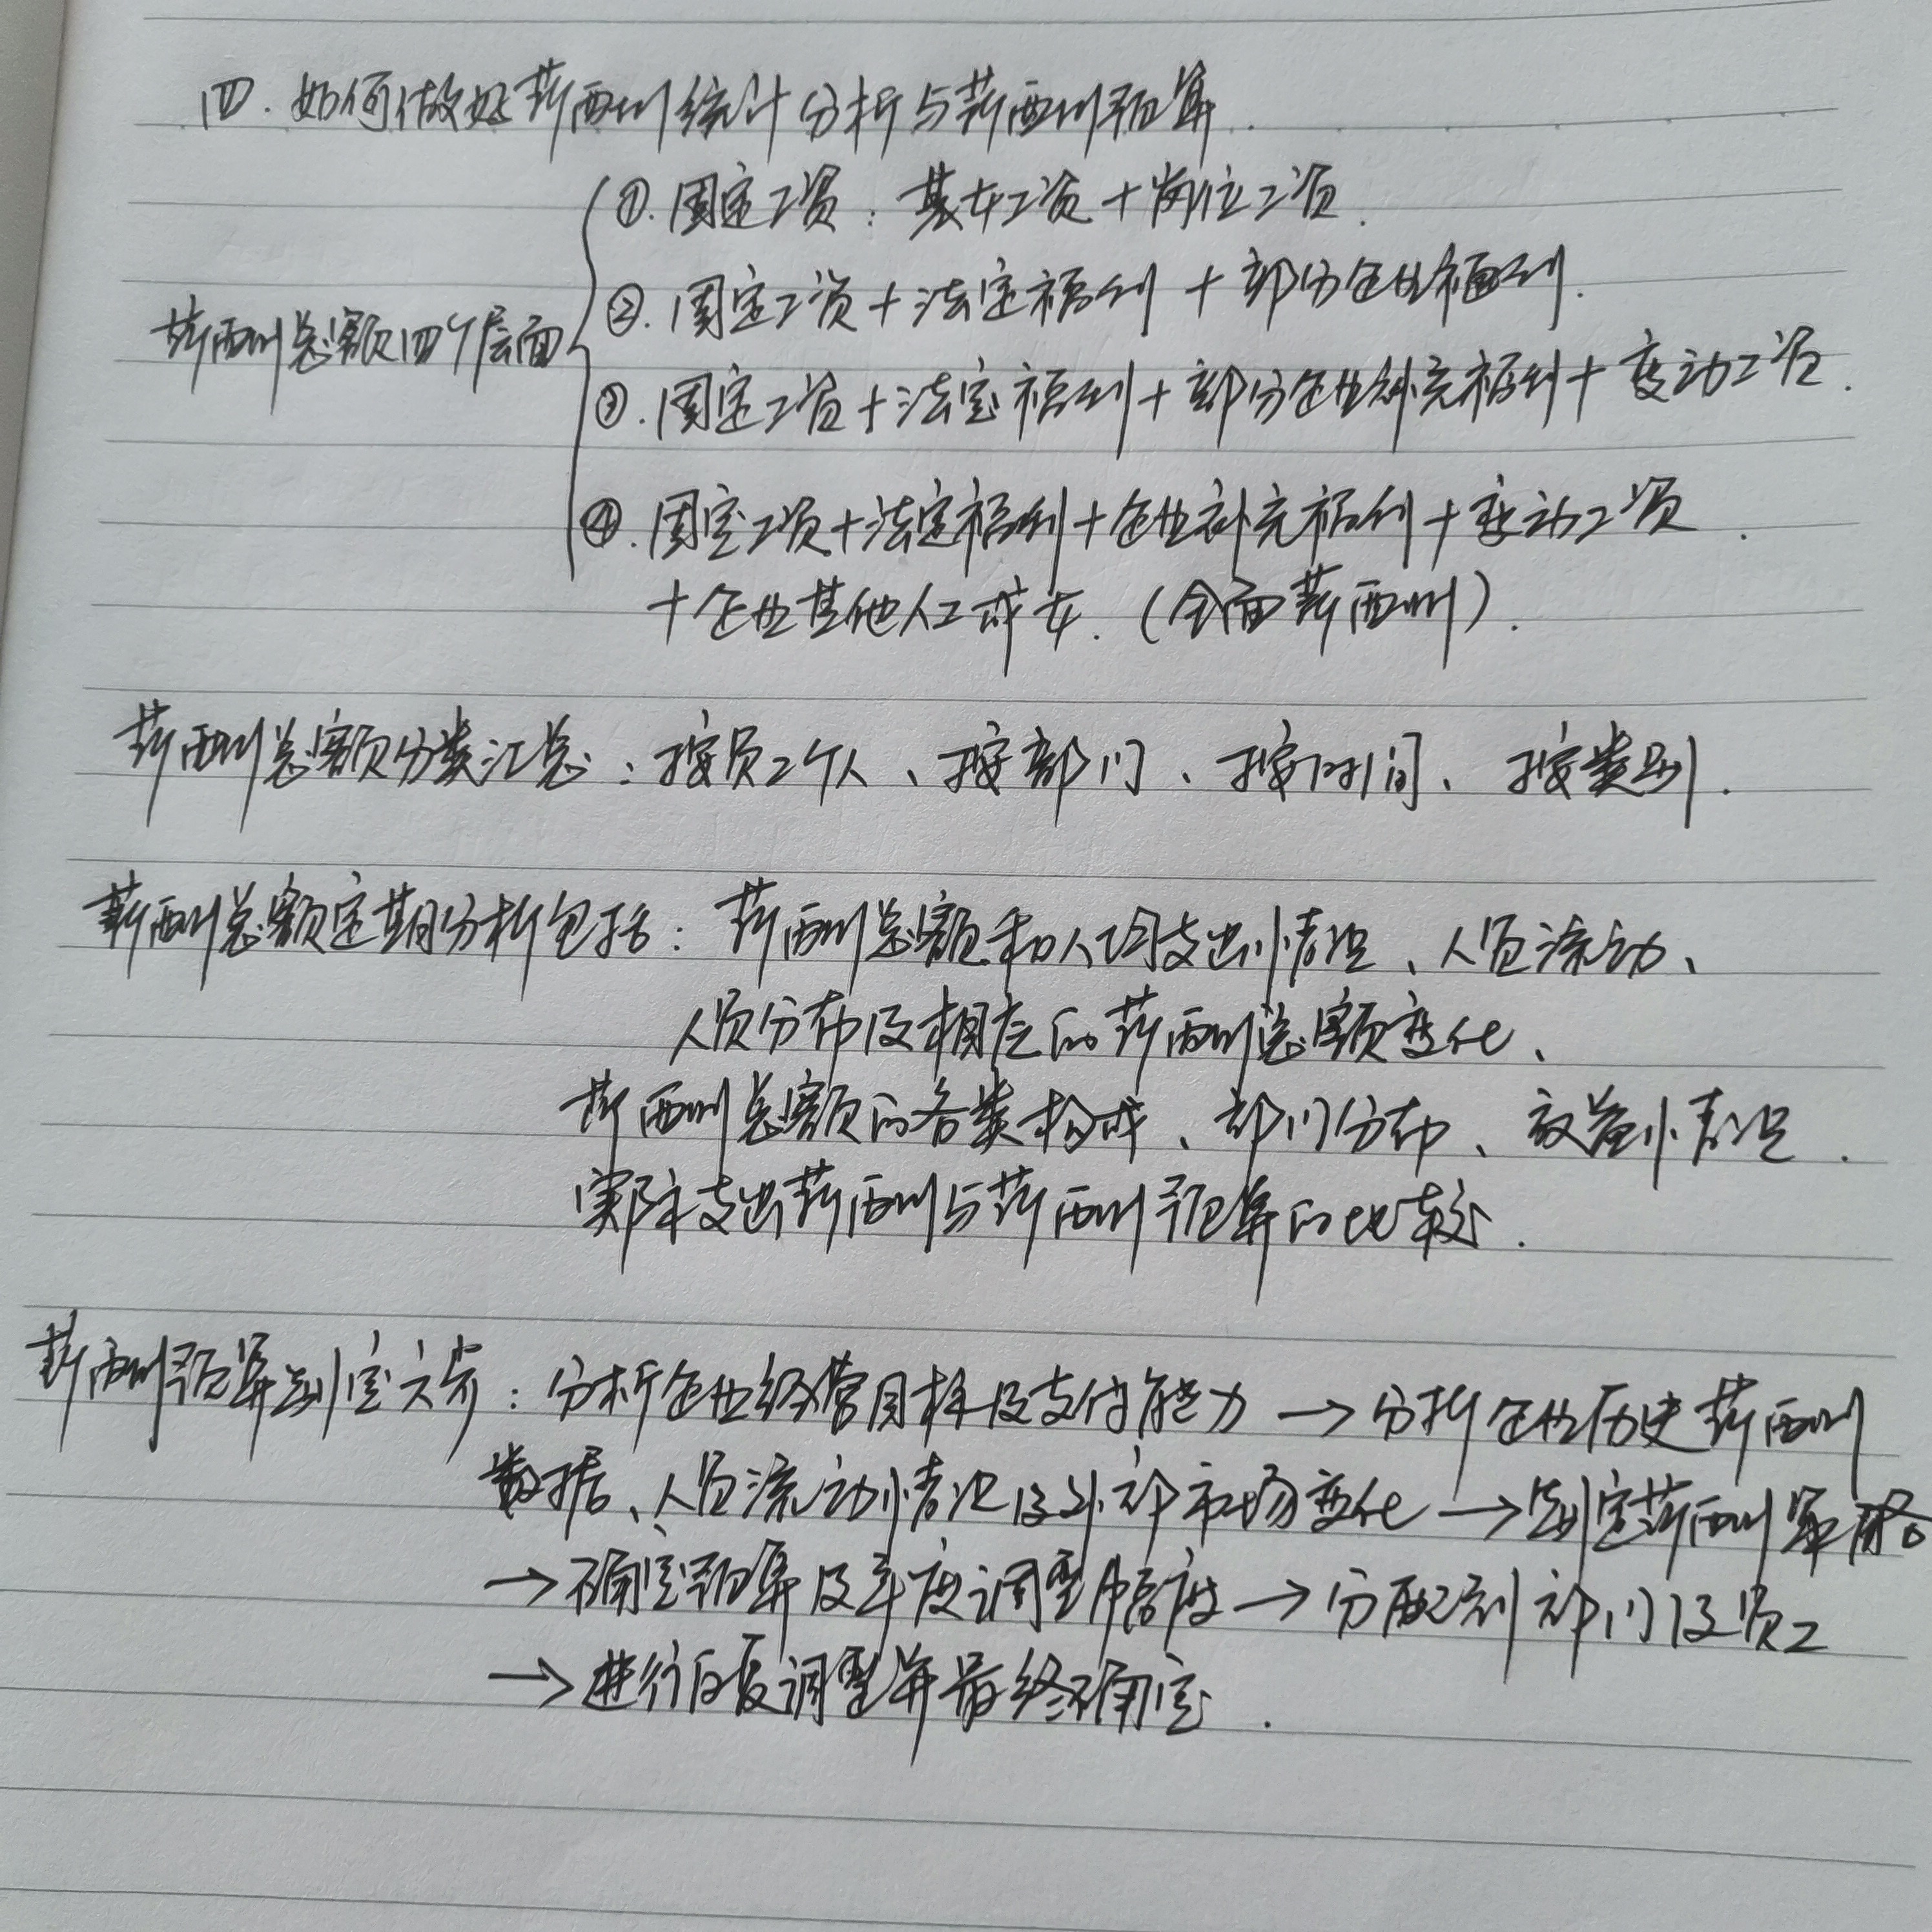 四.如何做好薪酬统计分析与薪酬预算.
薪酬总额四个层面
①.固定工资:基本工资+岗位工资.
②.固定工资+法定福利+部分企业福利.
③.固定工资+法定福利+部分企业补充福利+变动工资.
④.固定工资+法定福利+企业补充福利+变动工资.
+企业其他人工成本.(全面薪酬).
薪酬总额分类汇总:按员工个人、按部门、按时间、按类别.
薪酬总额定期分析包括:薪酬总额和人均支出情况、人员流动、
人员分布及相应的薪酬总额变化、
薪酬总额的各类构成、部门分布、效益情况.
实际支出薪酬与薪酬预算的比较.
薪酬预算制定六步:分析企业经营目标及支付能力→分析企业历史薪酬
数据、人员流动情况及外部市场变化→制定薪酬策略
→确定预算及年度调整幅度→分配到部门及员工
→进行反复调整并最终确定.